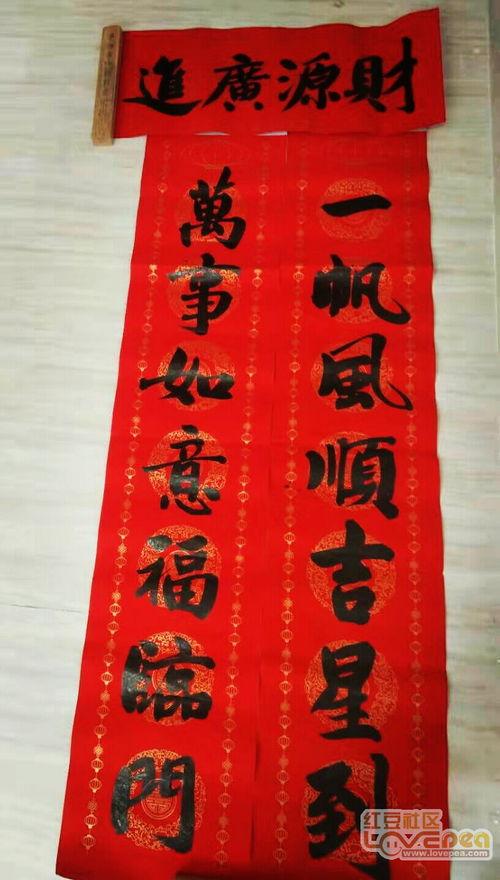 財源廣進
一帆風順吉星到
萬事如意福臨門
红豆社区
Lovepea
www.lovepea.com